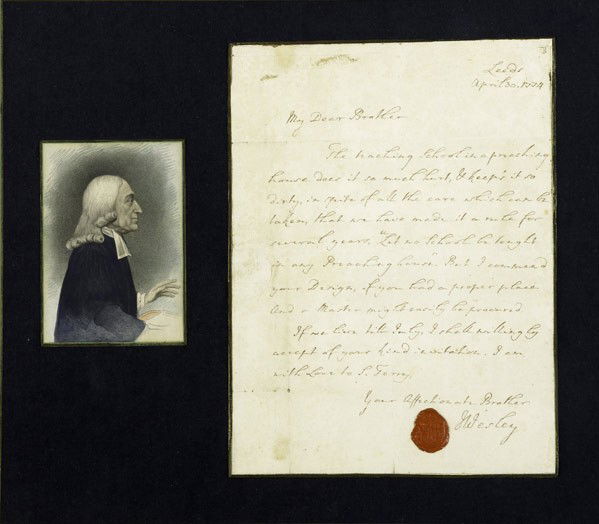 Leeds
April 30. 1774
My Dear Brother
The teaching School in a preaching
house does it so much hurt, & keeps it so
dirty, in spite of all the care which can be
taken, that we have made it a rule for
several years, "Let no School be taught
in any Preachinghouse". But I commend
your Design, if you had a proper place
And a Master might easily be procured
If we live till July, I shall willingly
accept of your kind invitation. I am
with Love to S. Terry,
Your Affectionate Brother
JWesley